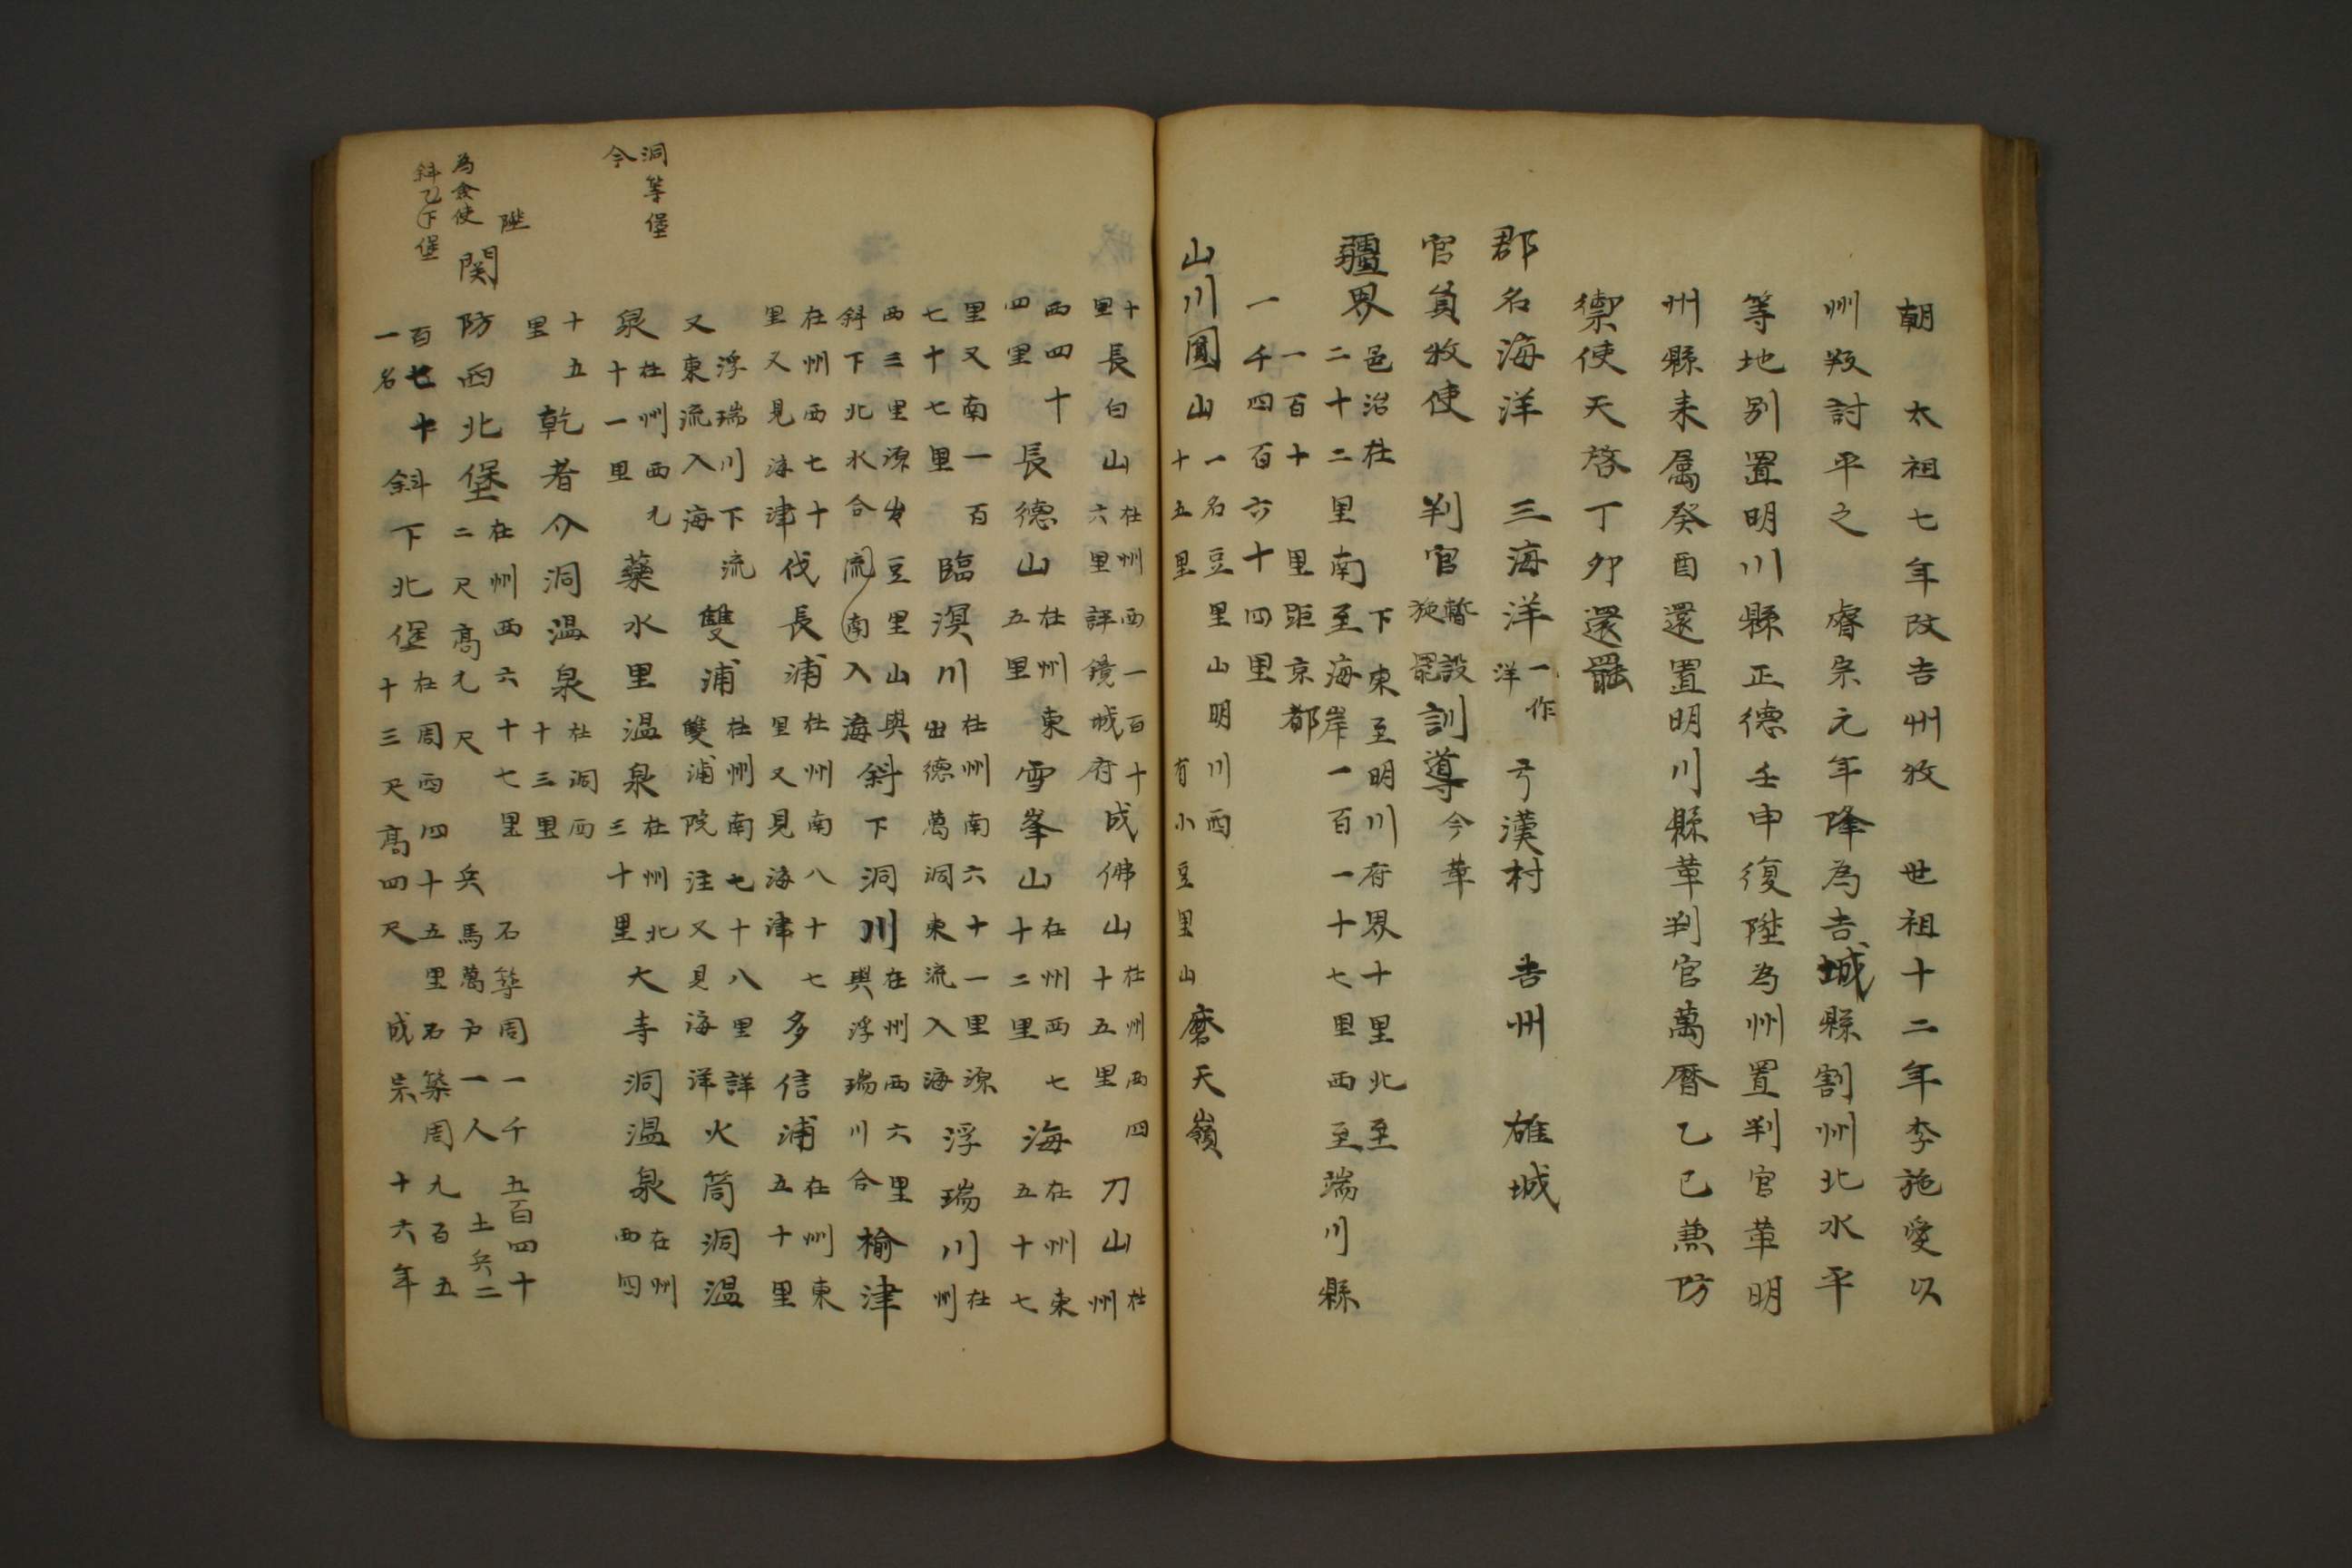 朝　太祖七年改吉州牧　世祖十二年李施愛以
州叛討平之　睿宗元年降為吉城縣割州北永平
等地別置明川縣正德壬申復陞為州置判官革明
州縣來屬癸酉還置明川縣革判官萬曆乙巳兼防
禦使天啓丁卯還罷
郡名海洋　三海洋一作洋　弓漢村　吉州　雄城
官員牧使　判官暫設旋罷訓導今革
疆界邑治在
二十二里南下東至明川府界十里北至
至海岸一百一十七里西至端川縣
一百十里距京都
一千四百六十四里
山川圓山一名豆里山明川西
十五里有小豆里山磨天嶺
在州西一百十
六里詳鏡城府
十里長白山成佛山在州西四
十五里刀山在州
西四十
四里長德山在州東
五里雪峯山在州西七
十二里海在州東
五十七
里又南一百
七十七里臨溟川在州南六十一里源
出德萬洞東流入海浮瑞川在州
西三里源出豆里山與
斜下北水合流南入海斜下洞川在州西六里
與浮瑞川合榆津
在州西七十
里又見海津伐長浦在州南八十七
里又見海津多信浦在州東
五十里
浮瑞川下流
又東流入海雙浦在州南七十八里詳
雙浦院注又見海洋火筒洞温
泉在州西九
十一里藥水里温泉在州北
三十里大寺洞温泉在州
西四
十五
里乾者介洞温泉在洞西
十三里
關防西北堡在州西六十七里石築周一千五百四十
二尺高九尺兵馬萬戶一人土兵二
百七十
一名斜下北堡在州西四十五里石築周九百五
十三尺高四尺成宗十六年
洞等堡
今
陞
為僉使
斜下堡